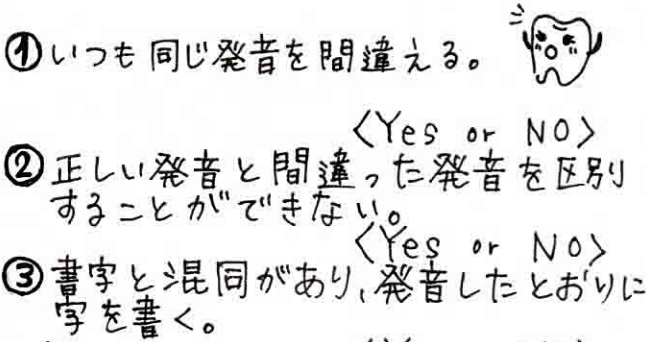 ①いつも同じ発音を間違える。
<Yes or NO>
②正しい発音と間違った発音を区別
することができない。
<Yes or NO>
③書字と混同があり、発音したとおりに
字を書く。